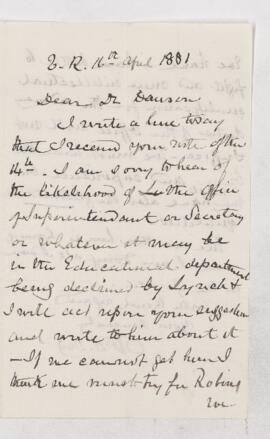 16th April 1881
Dear Dr Dawson
I write a line to say
that I received your note of the
14th. I am sorry to hear of
the likelihood of the office
of Superintendant or Secretary
or whatever it may be
in the Educational department
being declined by Lynch &
I will act upon your suggestion
and write to him about it
— If we cannot get him I
think we must try for Robins
we